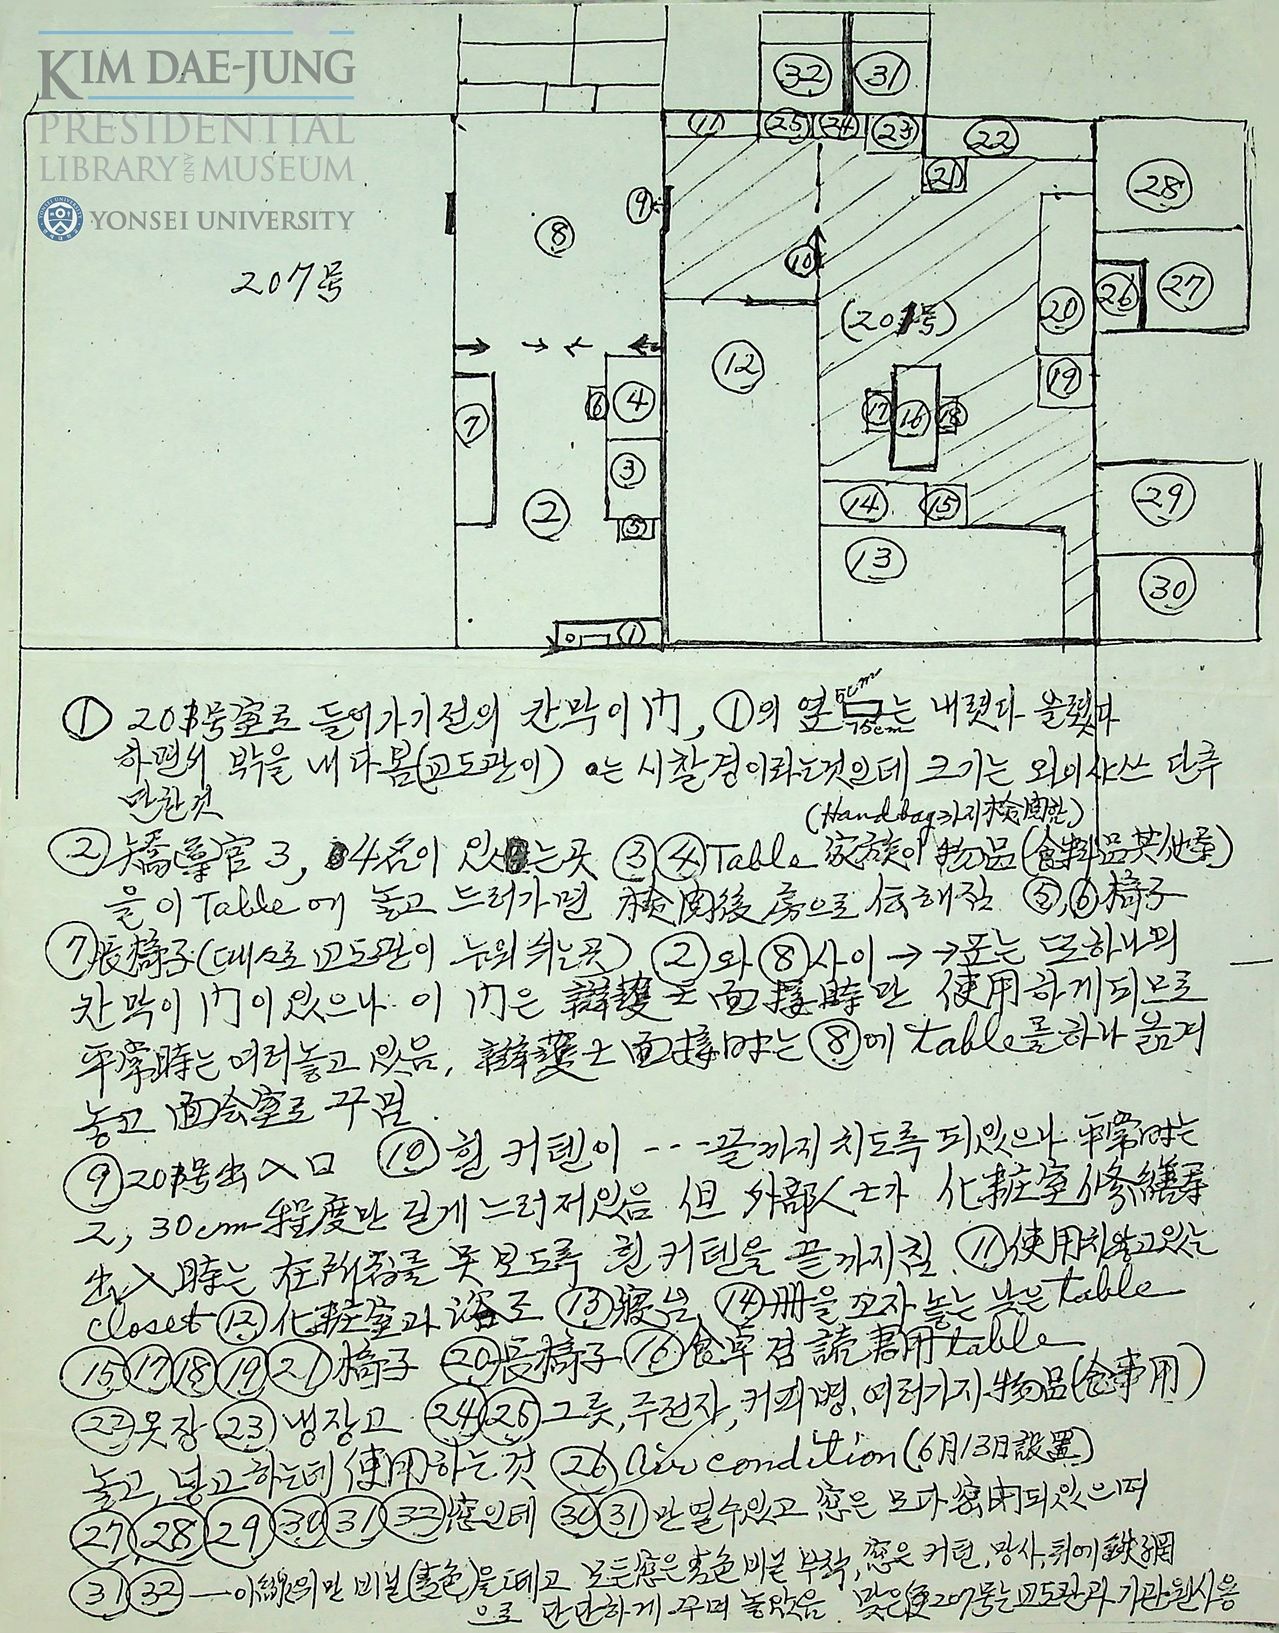 KIM DAE-JUNG
PRESIDENTIAL
LIBRARY AND MUSEUM
YONSEI UNIVERSITY
32 31
11 25 24 23 22
21
28
9
8
207号
10
26 27
20
(201号)
12
19
7 6 4
17 16 18
3
14 15
29
2
5
13
30
1
① 201号室로 들어가기전의 칸막이 门, ①의 옆 5cm 15cm는 내렸다 올렸다
하면서 밖을 내다봄(교도관이) o는 시찰경이라는것인데 크기는 와이샤쓰 단추
만한것
(Handbag까지 檢閱함)
② 矯導官 3, 4名이 있는곳 ③④ Table 家族이 物品(食料品其他等)
을 이 Table에 놓고 드러가면 檢閱後 房으로 伝해짐 ⑤,⑥ 椅子
⑦ 長椅子(때때로 교도관이 누워 쉬는곳) ②와 ⑧사이 → →표는 또하나의
칸막이 门이 있으나 이 门은 辯護士 面接時만 使用하게되므로
平常時는 여러놓고 있음, 辯護士 面接時는 ⑧에 table를 하나 옮겨
놓고 面会室로 꾸밈.
⑨ 201号出入口 ⑩ 흰 커텐이 --- 끝까지 치도록 되있으나 平常時는
2, 30cm 程度만 길게 느러져있음 但 外部人士가 化粧室修繕等
出入時는 在所者를 못보도록 흰 커텐을 끝까지침. ⑪ 使用치않고있는
closet ⑫ 化粧室과 浴조 ⑬ 寢台 ⑭ 冊을 꼬자 놓는 낮은 table
⑮⑰⑱⑲㉑ 椅子 ⑳ 長椅子 ⑯ 食卓겸 読書用 table
㉒ 옷장 ㉓ 냉장고 ㉔㉕ 그릇, 주전자, 커피병, 여러가지 物品(食事用)
놓고, 넣고 하는데 使用하는것 ㉖ air condition (6月13日設置)
㉗㉘㉙㉚㉛㉜ 窓인데 ㉚㉛만 열수있고 窓은 모다 密閉되있으며
㉛㉜ — 이線위만 비닐(青色)을 떼고 모든窓은 青色비닐 부착, 窓은 커텐, 망사, 뒤에 鉄網
으로 단단하게 꾸며 놓았음. 맞은便 207号는 교도관과 기관원사용